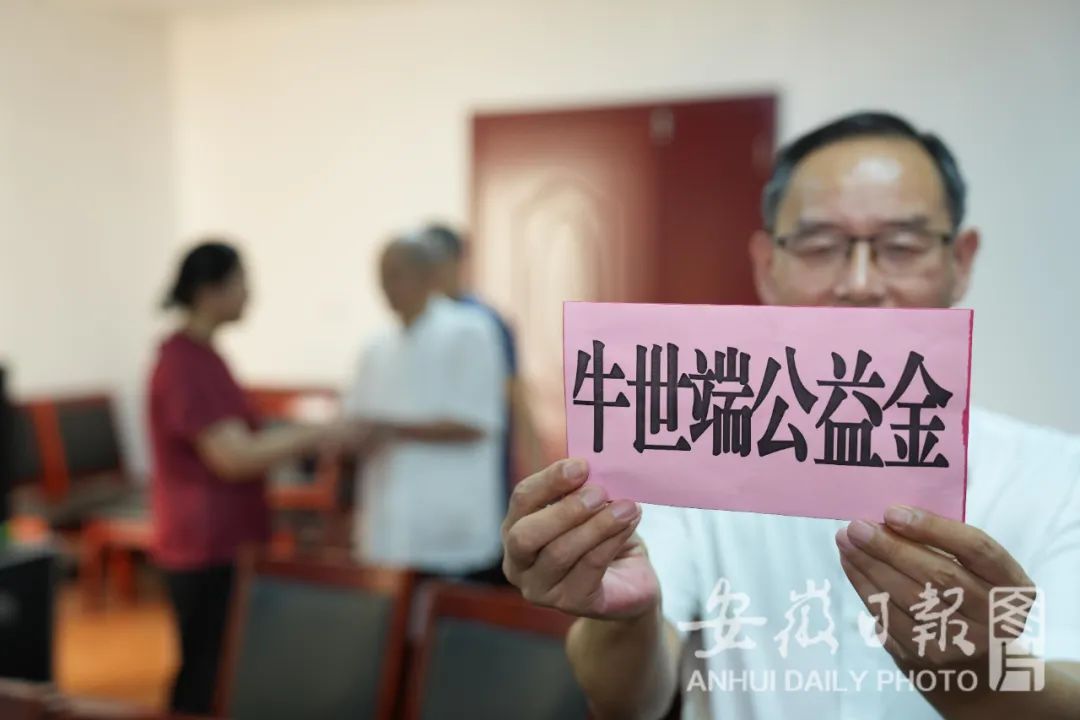 牛世端公益金
安徽日報图片
ANHUI DAILY PHOTO